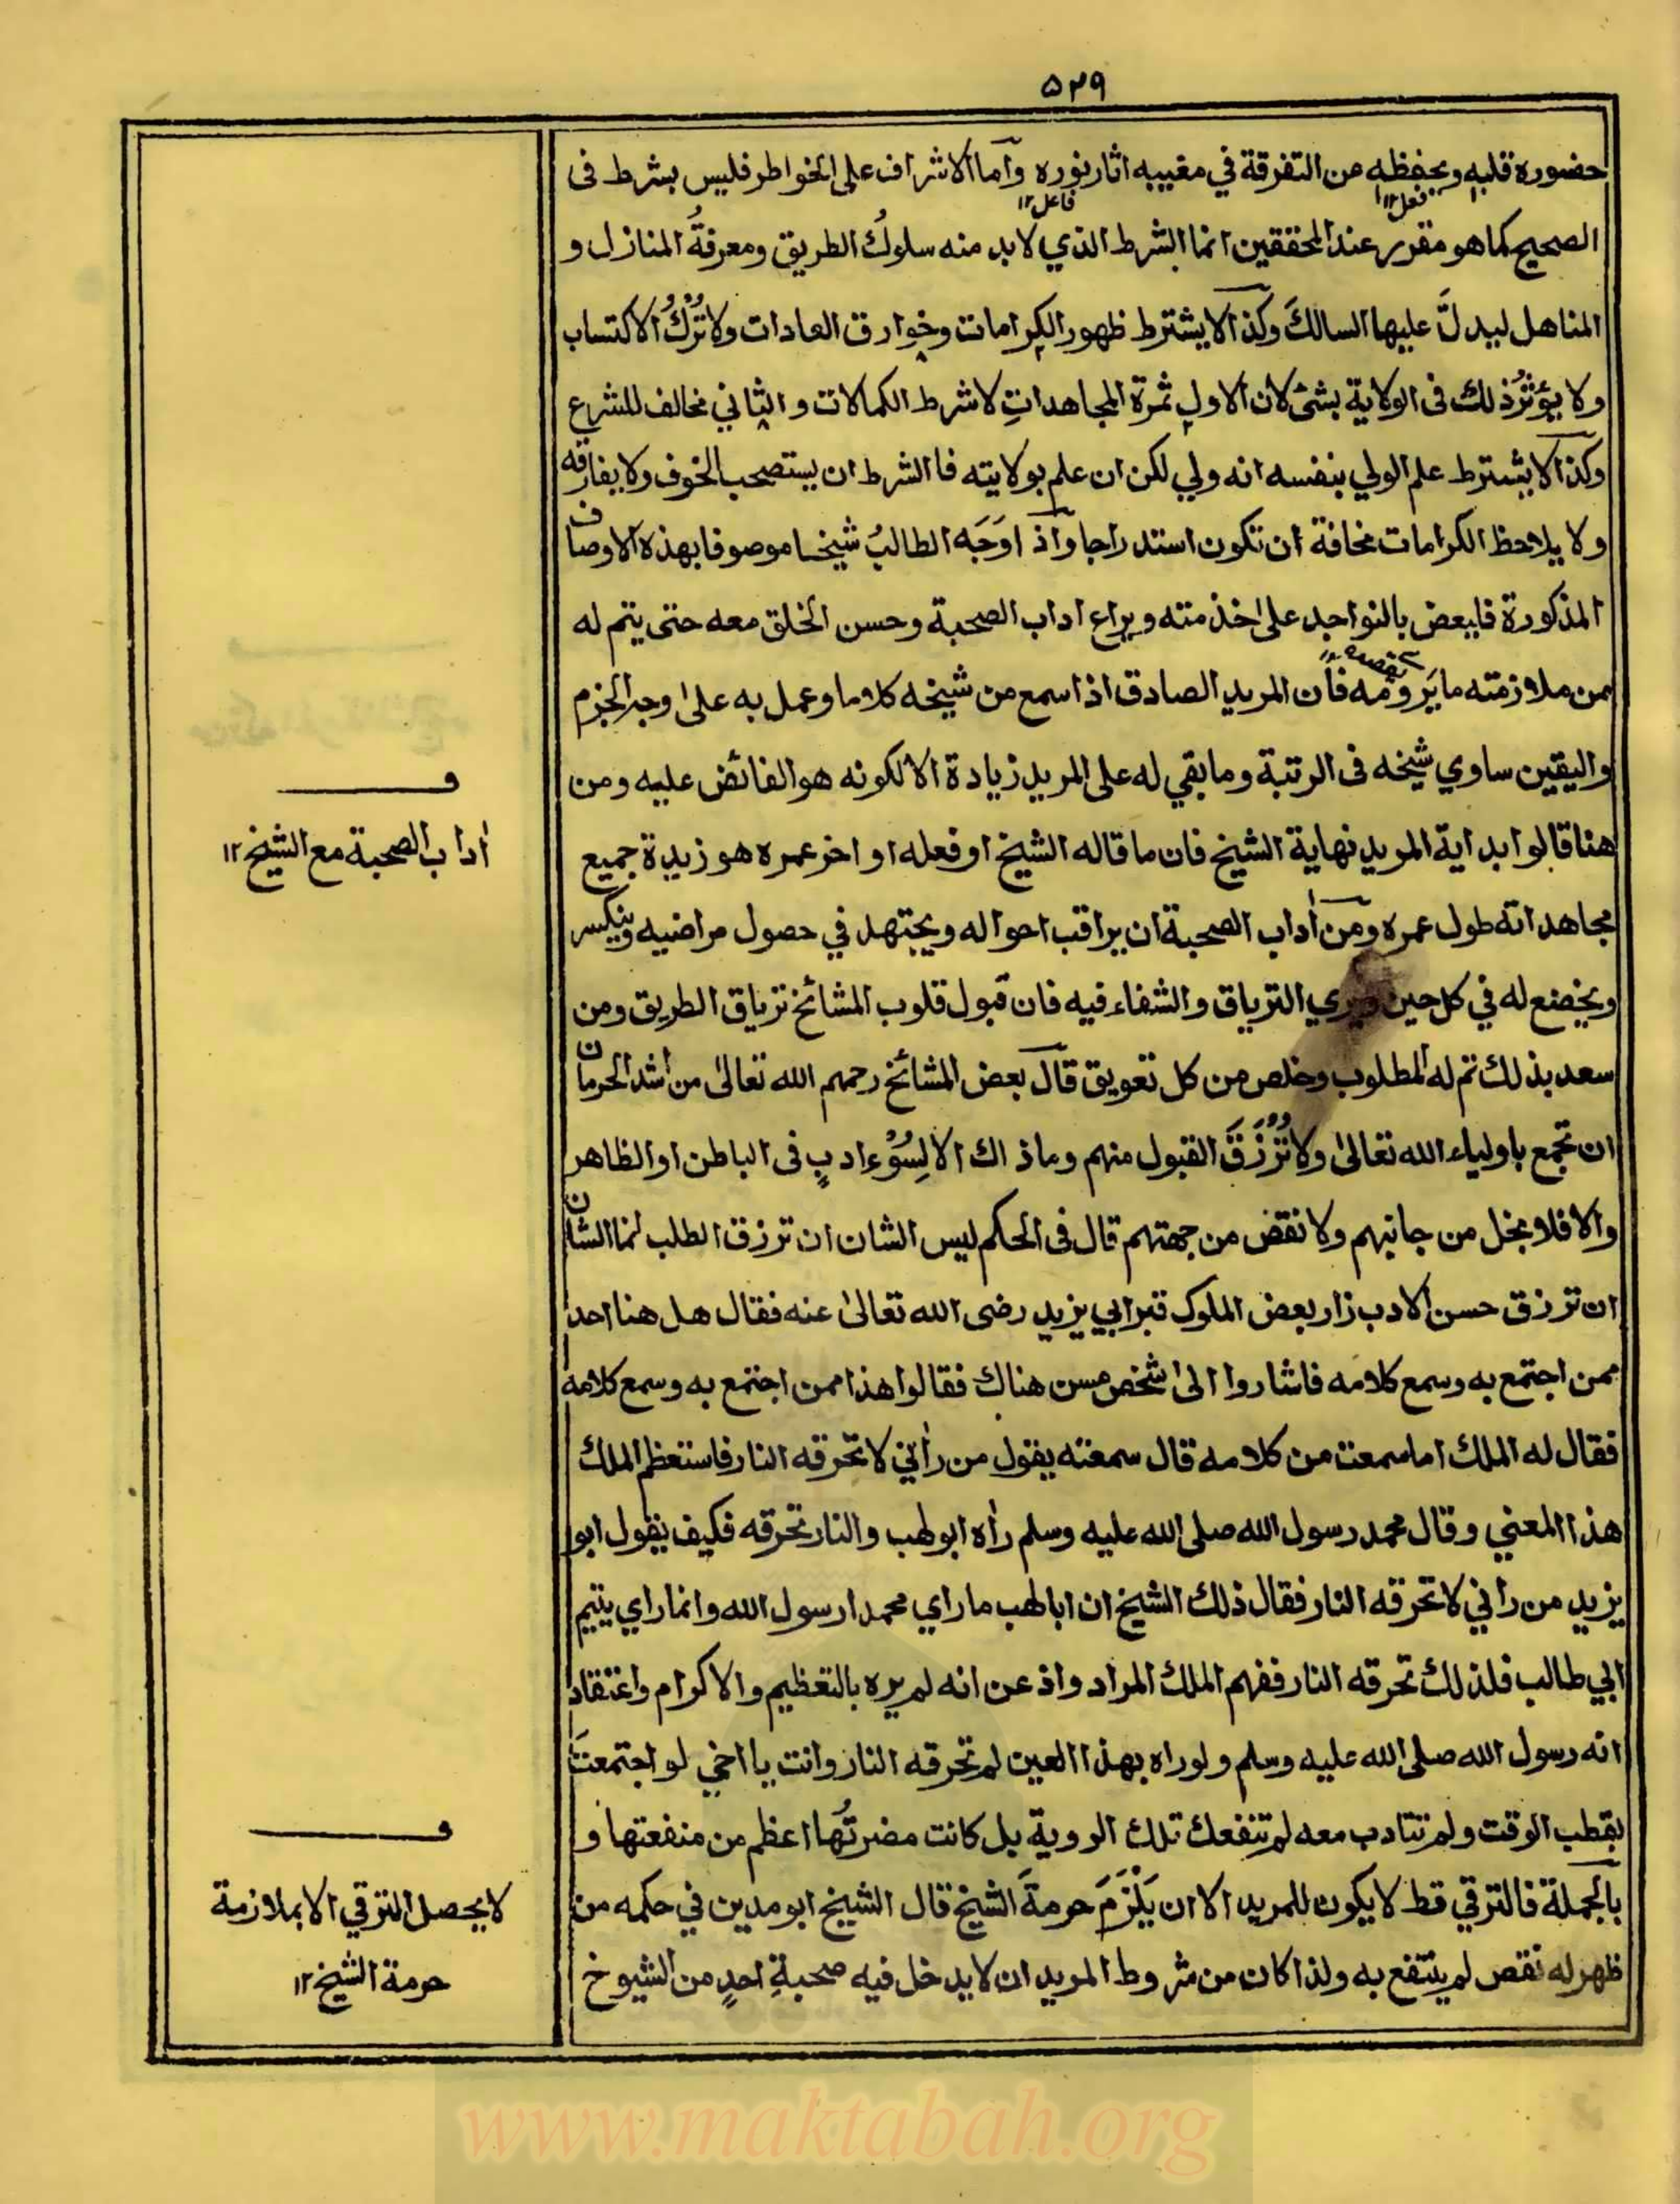 ۵۲۹
حضوره قلبه ويحفظه من التفرقة في مغيبه اثار نوره واما الاشراف على الخواطر فليس بشرط فى
فعل۱۲ فاعل۱۲
الصحيح كما هو مقرر عند المحققين انما الشرط الذي لا بد منه سلوكُ الطريق ومعرفةُ المنازل و
المناهل ليدلَّ عليها السالكَ وكذا لا يشترط ظهور الكرامات وخوارق العادات ولا تُرْكُ الاكتساب
ولا يؤثرُ ذلك فى الولاية بشئ لان الاول ثمرة المجاهداتِ لا شرط الكمالات والثاني مخالف للشرع
وكذا لا يشترط علم الولي بنفسه انه ولي لكن ان علم بولايته فالشرط ان يستصحب الخوف ولا يفارقه
ولا يلاحظ الكرامات مخافة ان تكون استدراجا واذا وَجَه الطالبُ شيخا موصوفا بهذه الاوصاف
المذكورة فليعض بالنواجد على خذمته ويراع اداب الصحبة وحسن الخلق معه حتى يتم له
من ملازمته ما يَرومُه فان المريد الصادق اذا سمع من شيخه كلاما وعمل به على وجه الجزم
واليقين ساوي شيخه فى الرتبة وما بقي له على المريد زيادة الا لكونه هو الفائض عليه ومن
هنا قالوا بداية المريد نهاية الشيخ فان ما قاله الشيخ او فعله اواخر عمره هو زبدة جميع
اداب الصحبة مع الشيخ ۱۲
مجاهداته طول عمره ومن اداب الصحبة ان يراقب احواله ويجتهد في حصول مراضيه وينكسر
ويخضع له في كل حين ويري الترياق والشفاء فيه فان قبول قلوب المشائخ ترياق الطريق ومن
سعد بذلك تم له المطلوب وخلص من كل تعويق قال بعض المشائخ رحمهم الله تعالى من اشد الحرمان
ان تجمع باولياء الله تعالى ولا تُرْزَقَ القبول منهم وما ذاك الا لِسُوْءِ ادبٍ فى الباطن او الظاهر
والا فلا بخل من جانبهم ولا نقض من جهتهم قال فى الحكم ليس الشان ان ترزق الطلب انما الشان
ان ترزق حسن الادب زار بعض الملوك قبر ابي يزيد رضى الله تعالى عنه فقال هل هنا احد
ممن اجتمع به وسمع كلامه فاشاروا الى شخص مسن هناك فقالوا هذا ممن اجتمع به وسمع كلامه
فقال له الملك اما سمعت من كلامه قال سمعته يقول من رأني لا تحرقه النار فاستعظم الملك
هذا المعني وقال محمد رسول الله صلى الله عليه وسلم رأه ابو لهب والنار تحرقه فكيف يقول ابو
يزيد من راني لا تحرقه النار فقال ذلك الشيخ ان ابا لهب ما راي محمدا رسول الله وانما راي يتيم
ابي طالب فلذلك تحرقه النار ففهم الملك المراد واذعن انه لم يره بالتعظيم والاكرام واعتقاد
انه رسول الله صلى الله عليه وسلم ولو راه بهذا العين لم تحرقه النار وانت يا اخي لو اجتمعتَ
بقطب الوقت ولم تتادب معه لم تنفعك تلك الروية بل كانت مضرتُها اعظم من منفعتها و
بالجملة فالترقي قط لا يكون للمريد الا ان يَلْزَمَ حرمةَ الشيخ قال الشيخ ابو مدين في حكمه من
لا يحصل الترقي الا بملازمة
حرمة الشيخ ۱۲
ظهر له نقص لم ينتفع به ولذا كان من شروط المريد ان لا يدخل فيه صحبةِ احدٍ من الشيوخ
www.maktabah.org